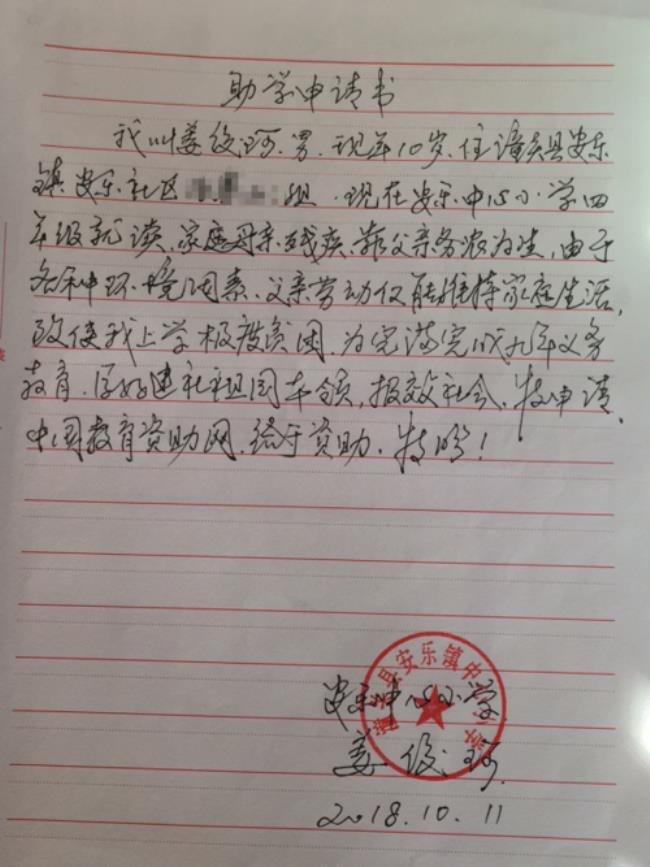 助学申请书
我叫姜俊珂.男.现年10岁.住潼关县安乐
镇安乐社区 组.现在安乐中心小学四
年级就读.家庭母亲残疾.靠父亲务农为生,由于
各种环境因素.父亲劳动仅能维持家庭生活,
致使我上学极度贫困.为完满完成九年义务
教育.学好建社祖国本领,报效社会.特申请.
中国教育资助网.给于资助.特盼!
潼关县安乐镇中心小学
安乐中心小学
姜俊珂.
2018.10.11